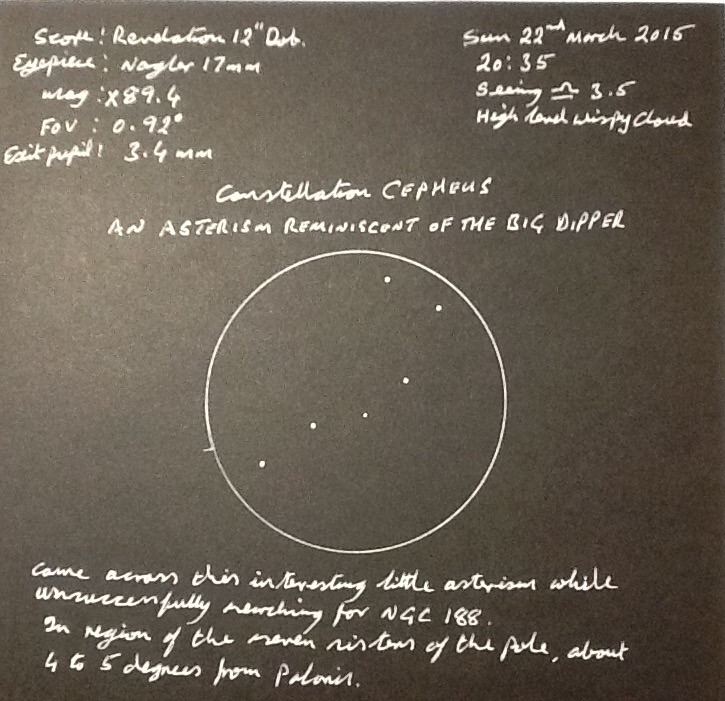 Scope: Revelation 12" Dob.
Eyepiece: Nagler 17mm
Mag: x89.4
FoV: 0.92°
Exit pupil: 3.4 mm
Sun 22nd March 2015
20:35
Seeing ≏ 3.5
High level wispy Cloud
Constellation CEPHEUS
AN ASTERISM REMINISCENT OF THE BIG DIPPER
Came across this interesting little asterism while
unsuccessfully searching for NGC 188.
In region of the seven sisters of the pole, about
4 to 5 degrees from Polaris.